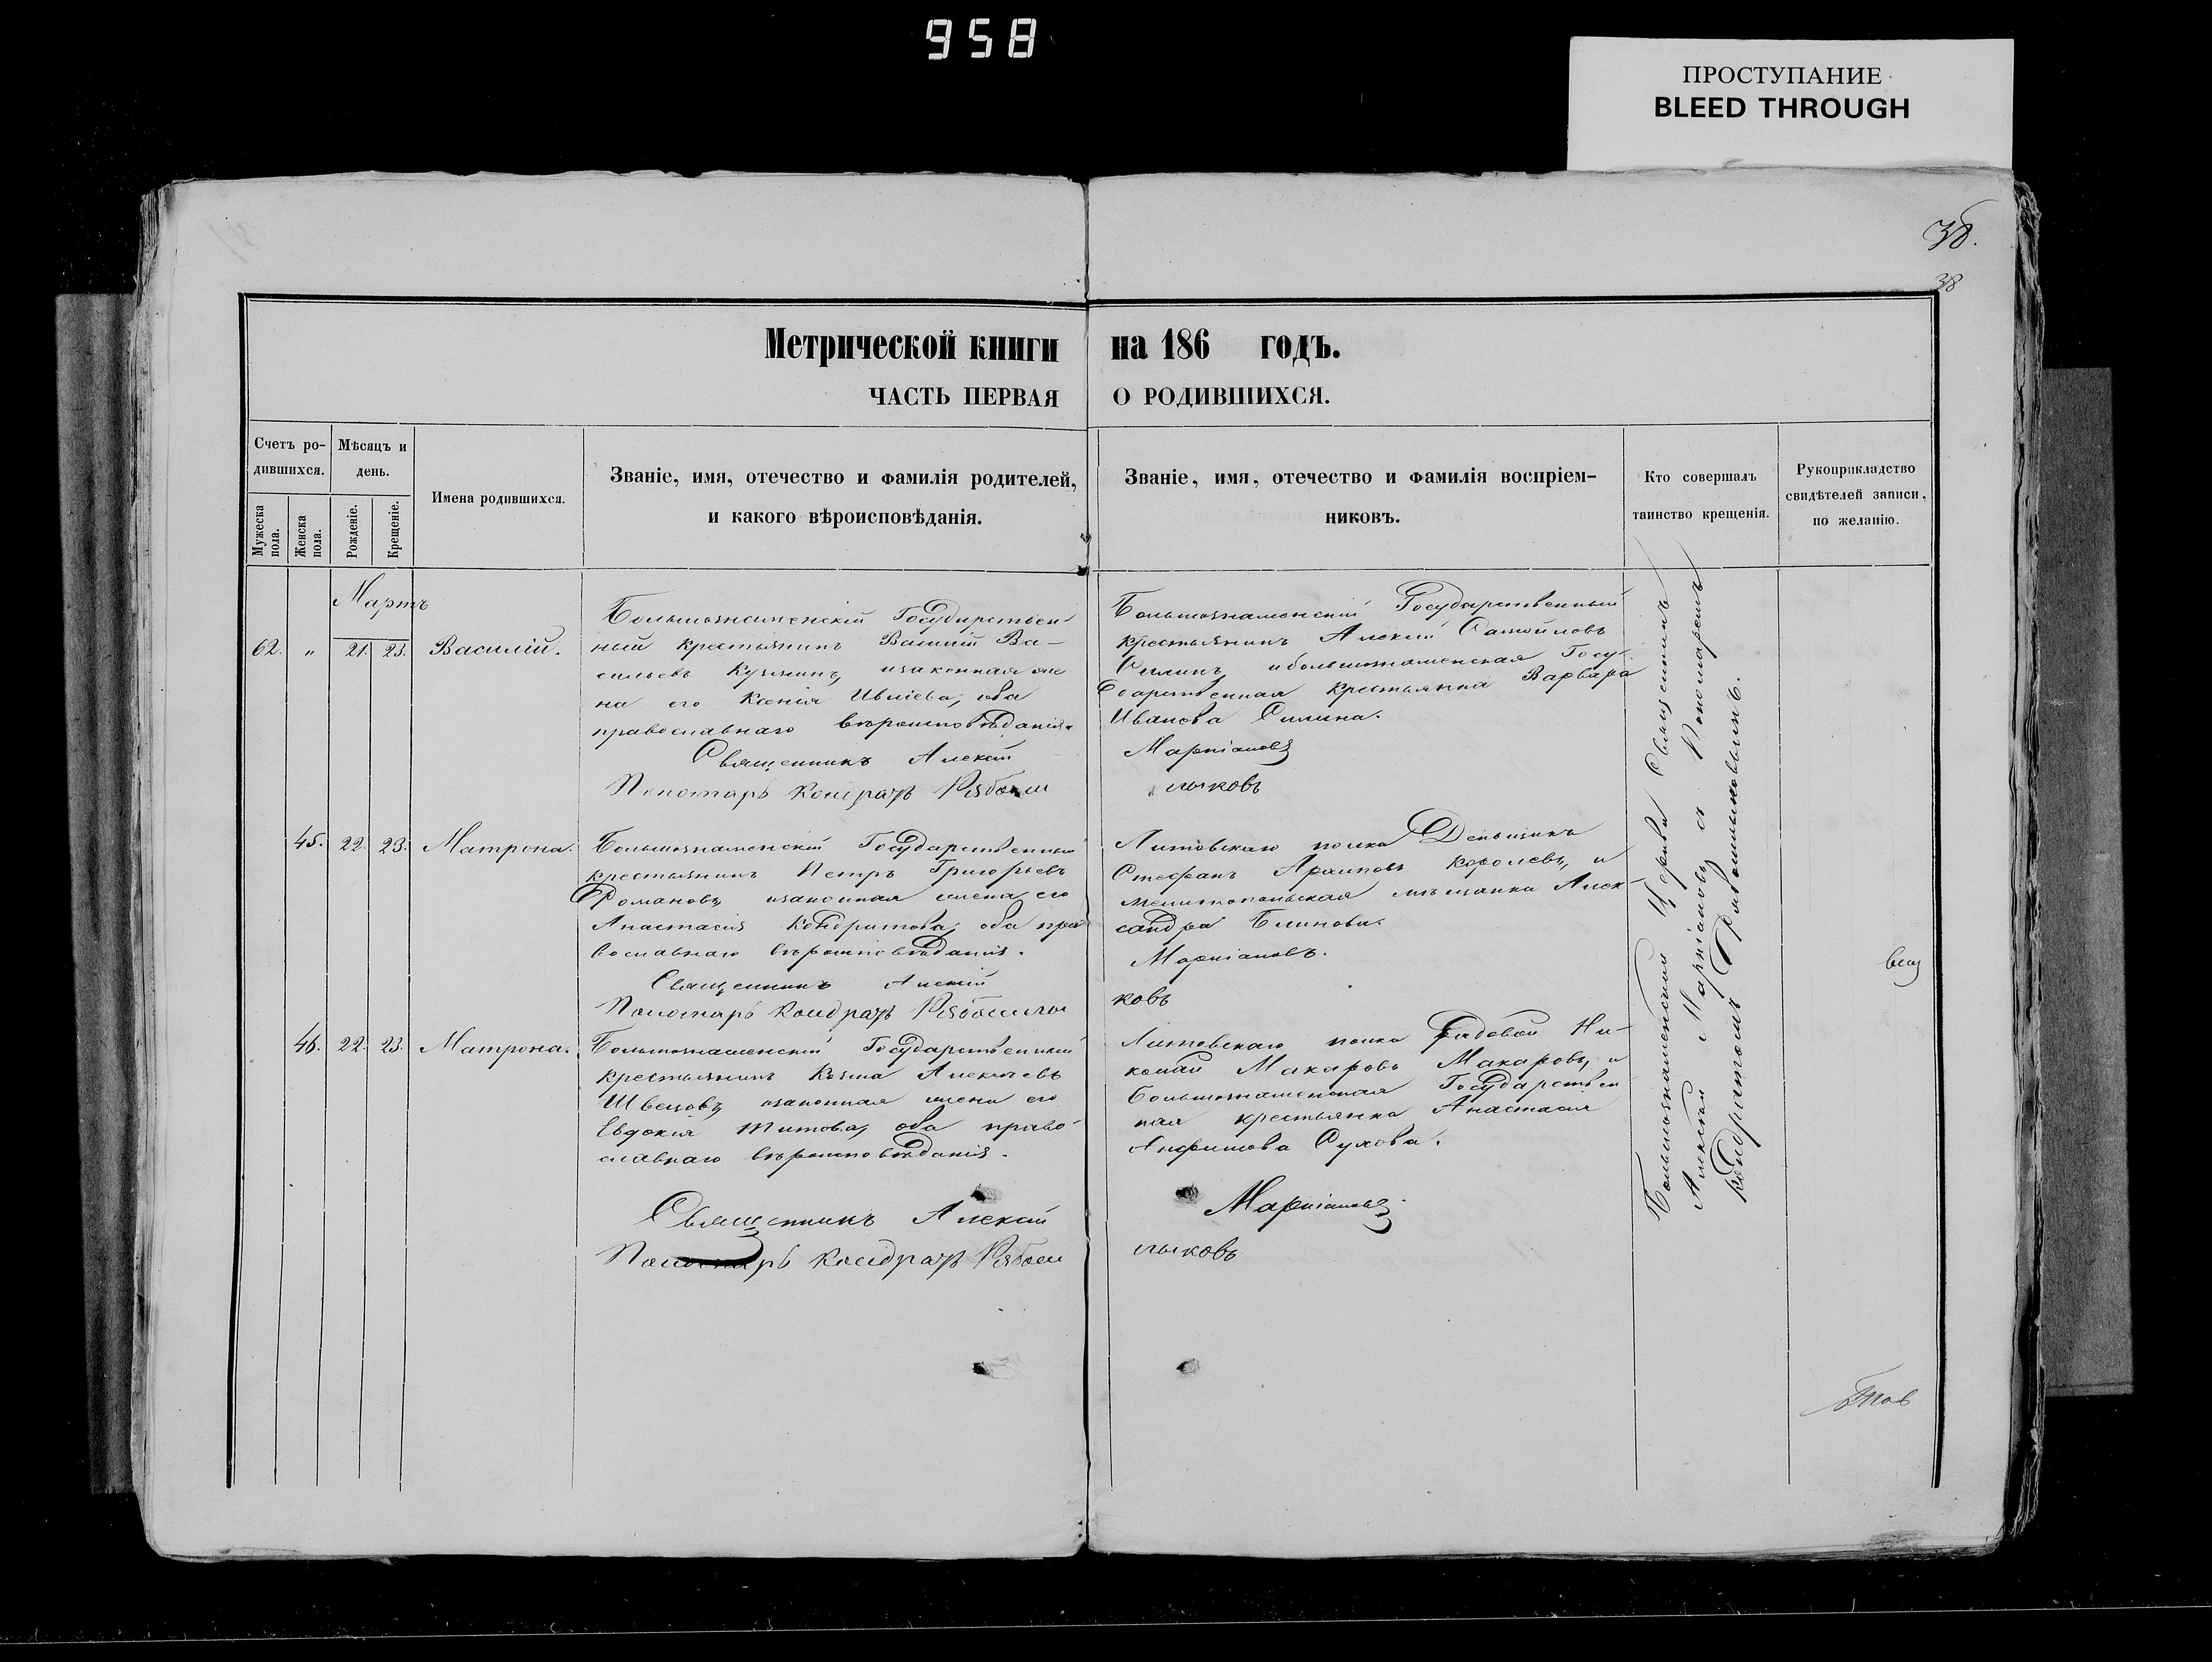 958
ПРОСТУПАНИЕ
BLEED THROUGH
38.
38
Метрической книги на 186 годъ.
ЧАСТЬ ПЕРВАЯ О РОДИВШИХСЯ.
Счетъ ро-
дившихся.
Мужеска пола.
Женска пола.
Мѣсяцъ и
день.
Рожденіе.
Крещеніе.
Имена родившихся.
Званіе, имя, отечество и фамилія родителей,
и какого вѣроисповѣданія.
Званіе, имя, отечество и фамилія воспріем-
никовъ.
Кто совершалъ
таинство крещенія.
Рукоприкладство
свидѣтелей записи,
по желанію.
Мартъ
62. „ 21. 23. Василій.
Большознаменскій Государствен
ный крестьянинъ Василій Ва-
сильевъ Кузминъ, изаконная же
на его Ксенія Ивлiева, оба
православнаго вѣроисповѣданія.
Священникъ Алексій
Пономарь Кондратъ Рябош
Большознаменскій Государственный
крестьянинъ Алексій Самойловъ
Силинъ, ибольшознаменская Госу-
дарственная крестьянка Варвара
Иванова Силина.
Маркіановъ
лыковъ
45. 22. 23. Матрона.
Большознаменскій Государственный
крестьянинъ Петръ Григорьевъ
Романовъ изаконная жена его
Анастасія Кондратова, оба пра
вославнаго вѣроисповѣданія.
Священникъ Алексій
Пономарь Кондратъ Рябошлы
Литовскаго полка Деньщикъ
Стефанъ Архиповъ Королевъ, и
мелитопольская мѣщанка Алек-
сандра Блинова.
Маркіановъ.
ковъ
46. 22. 23. Матрона.
Большознаменскій Государственный
крестьянинъ Козма Алексѣевъ
Швецовъ изаконная жена его
Евдокія Титова, оба право
славнаго вѣроисповѣданія.
Священникъ Алексій
Пономарь Кондратъ Рябош
Литовскаго полка Рядовой Ни-
колай Макаровъ Макаровъ, и
Большознаменская Государствен
ная крестьянка Анастасія
Анфимова Сухова.
Маркіановъ
лыковъ
Большознаменской Церкви Священникъ
Алексій Маркіановъ съ Пономаремъ
Кондратомъ Рябошлыковымъ.